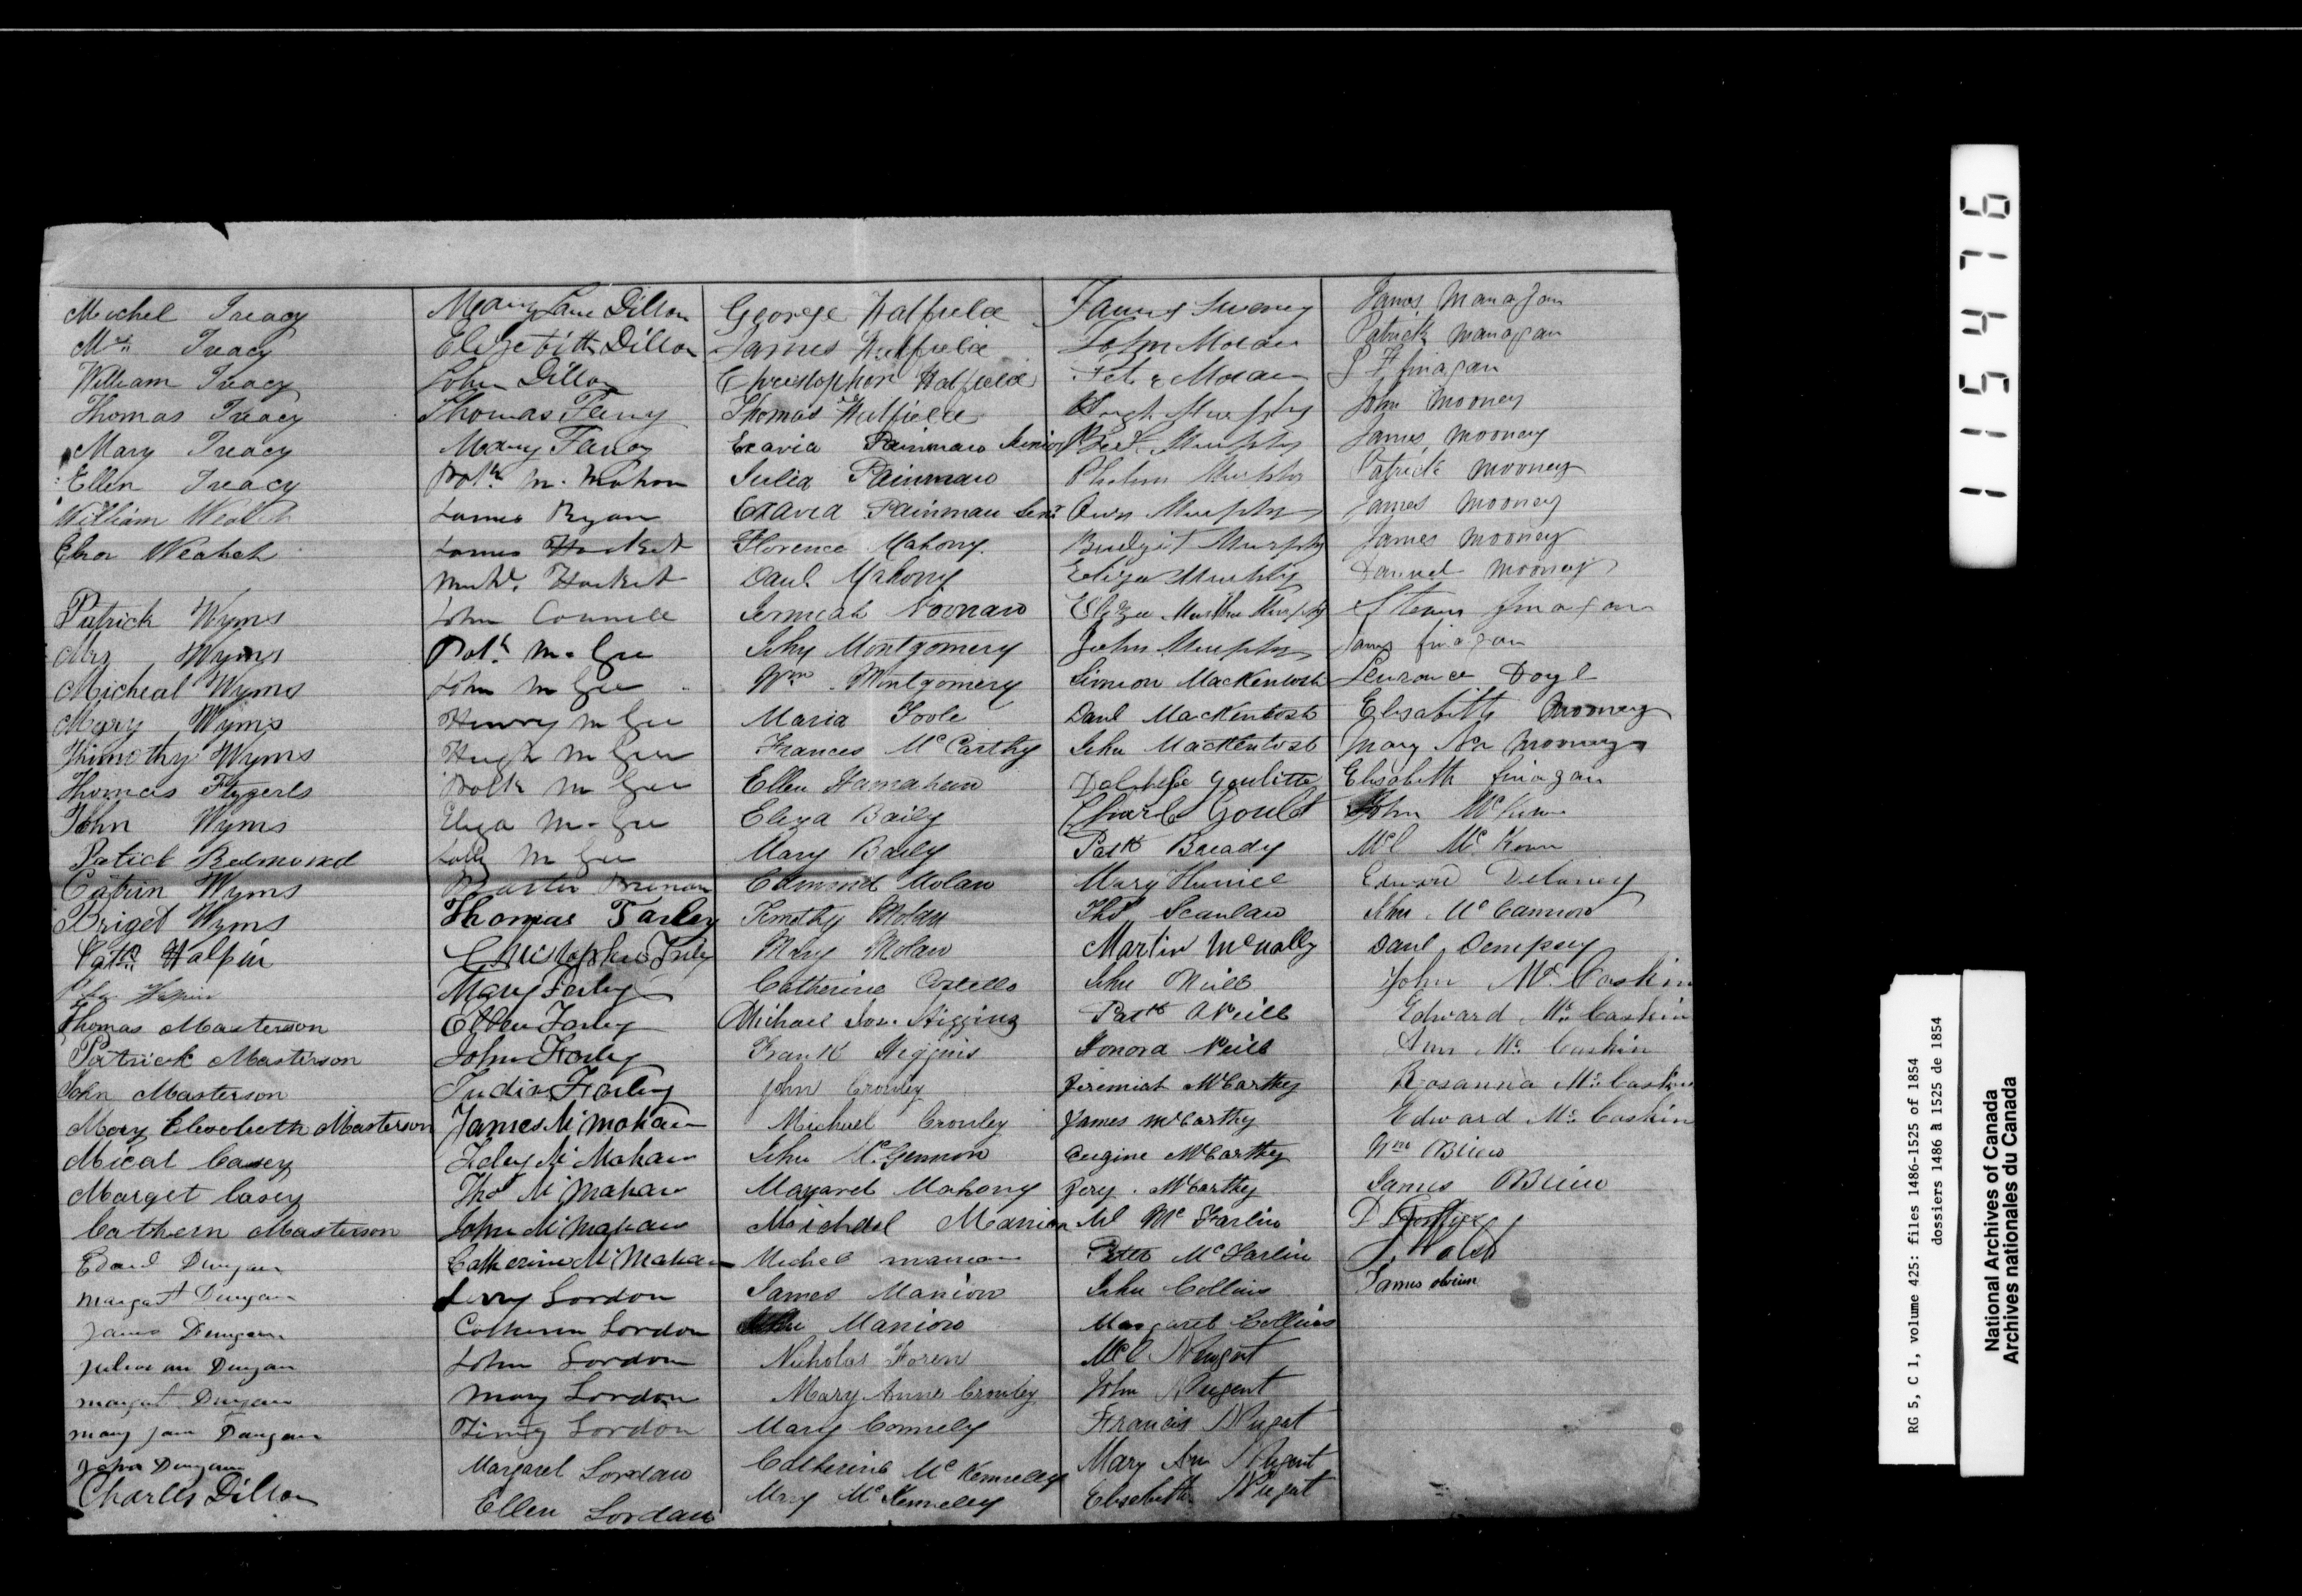 Michel Treacy
Mrs Treacy
William Treacy
Thomas Treacy
Mary Treacy
Ellen Treacy
William Wealch
Elnor Wealch
Patrick Wyms
Mrs Wyms
Micheal Wyms
Mary Wyms
Thimothy Wyms
Thomas Fitzgerls
John Wyms
Patick Redmond
Catrin Wyms
Briget Wyms
Patk Halpin
Halpin
Thomas Masterson
Patrick Masterson
John Masterson
Mary Elesebeth Masterson
Mical Casey
Marget Casey
Cathern Masterson
Edard Dungan
Margat Dungan
James Dungan
Julia an Dungan
margat Dungan
mary jane Dungan
John Dungan
Charles Dillon
Mary Jane Dillon
Elizebitth Dillon
John Dillon
Thomas Farry
Mary Farry
Patk M. Mahon
James Ryan
James Hacket
Michl. Hacket
John Connell
Patk McGee
John McGee
Henry McGee
Hugh McGee
Patk McGee
Eliza McGee
McGee
Brenan
Thomas Farley
Christopher Farley
Mary Farley
Ellen Farley
John Farley
Judia Farley
James McMahan
McMahan
Thos McMahan
John McMahan
Catherine McMahan
Jerry Lordon
Catheren Lordon
John Lordon
Mary Lordon
Timy Lordon
Margaret Lordan
Ellen Lordan
George Hatfield
James Hatfield
Christopher Hatfield
Thomas Hatfield
Exavia Painmaw Senior
Julia Painmaw
Exavia Painmau Senr
Florence Mahony
Danl Mahony
Jermiah Noonaw
John Montgomery
Wm Montgomery
Maria Toole
Frances McCarthy
Ellen Hanrahan
Eliza Baily
Mary Baily
Edmond Molaw
Timothy Molaw
Mary Molaw
Catherine Costello
Michael Higgins
Frank Higgins
John Crowley
Michael Crowley
John McGennon
Magaret Mahony
Maichael Manion
Michel manion
James Manion
John Manion
Nicholas Foren
Mary Anne Crowley
Mary Connely
Catherine McKenneley
Mary McKenneley
James Sweney
John Moran
Peter Moran
Hugh Murphy
Murphy
Phelem Murphy
Own Murphy
Bridgit Murphy
Eliza Murphy
Eliza Martha Murphy
John Murphy
Simeon MacKentosh
Danl MacKentosh
John MacKentosh
Goulitte
Charls Gould
Patk Bready
Mary Hunice
Thos Scanlaw
Martin McNally
John Neill
Patk ONeill
Honora Neill
Jeremiah McCarthy
James McCarthy
Eugine McCarthy
Jery. McCarthy
Ml McFarlin
Peter McFarlin
John Collins
Margaret Collins
Ml Nugent
John Nugent
Francis Nugent
Mary Ann Nugent
Elisebeth Nugent
James Managan
Patrick Managan
finagan
John Mooney
James Mooney
Patrick Mooney
James Mooney
James Mooney
Daniel Mooney
finagan
James finagan
Laurance Doyl
Elisabeth Mooney
Mary An Mooney
Elisabeth finagan
John McKeown
Ml McKeown
Edward Delaney
John McCannon
Danl Dempsey
John Mc Caskin
Edward Mc Caskin
Ann Mc Caskin
Rosanna Mc Caskin
Edward Mc Caskin
Wm OBrien
James OBrien
J. Walsh
James obrien
115476
RG 5, C 1, volume 425: files 1486-1525 of 1854
dossiers 1486 à 1525 de 1854
National Archives of Canada
Archives nationales du Canada